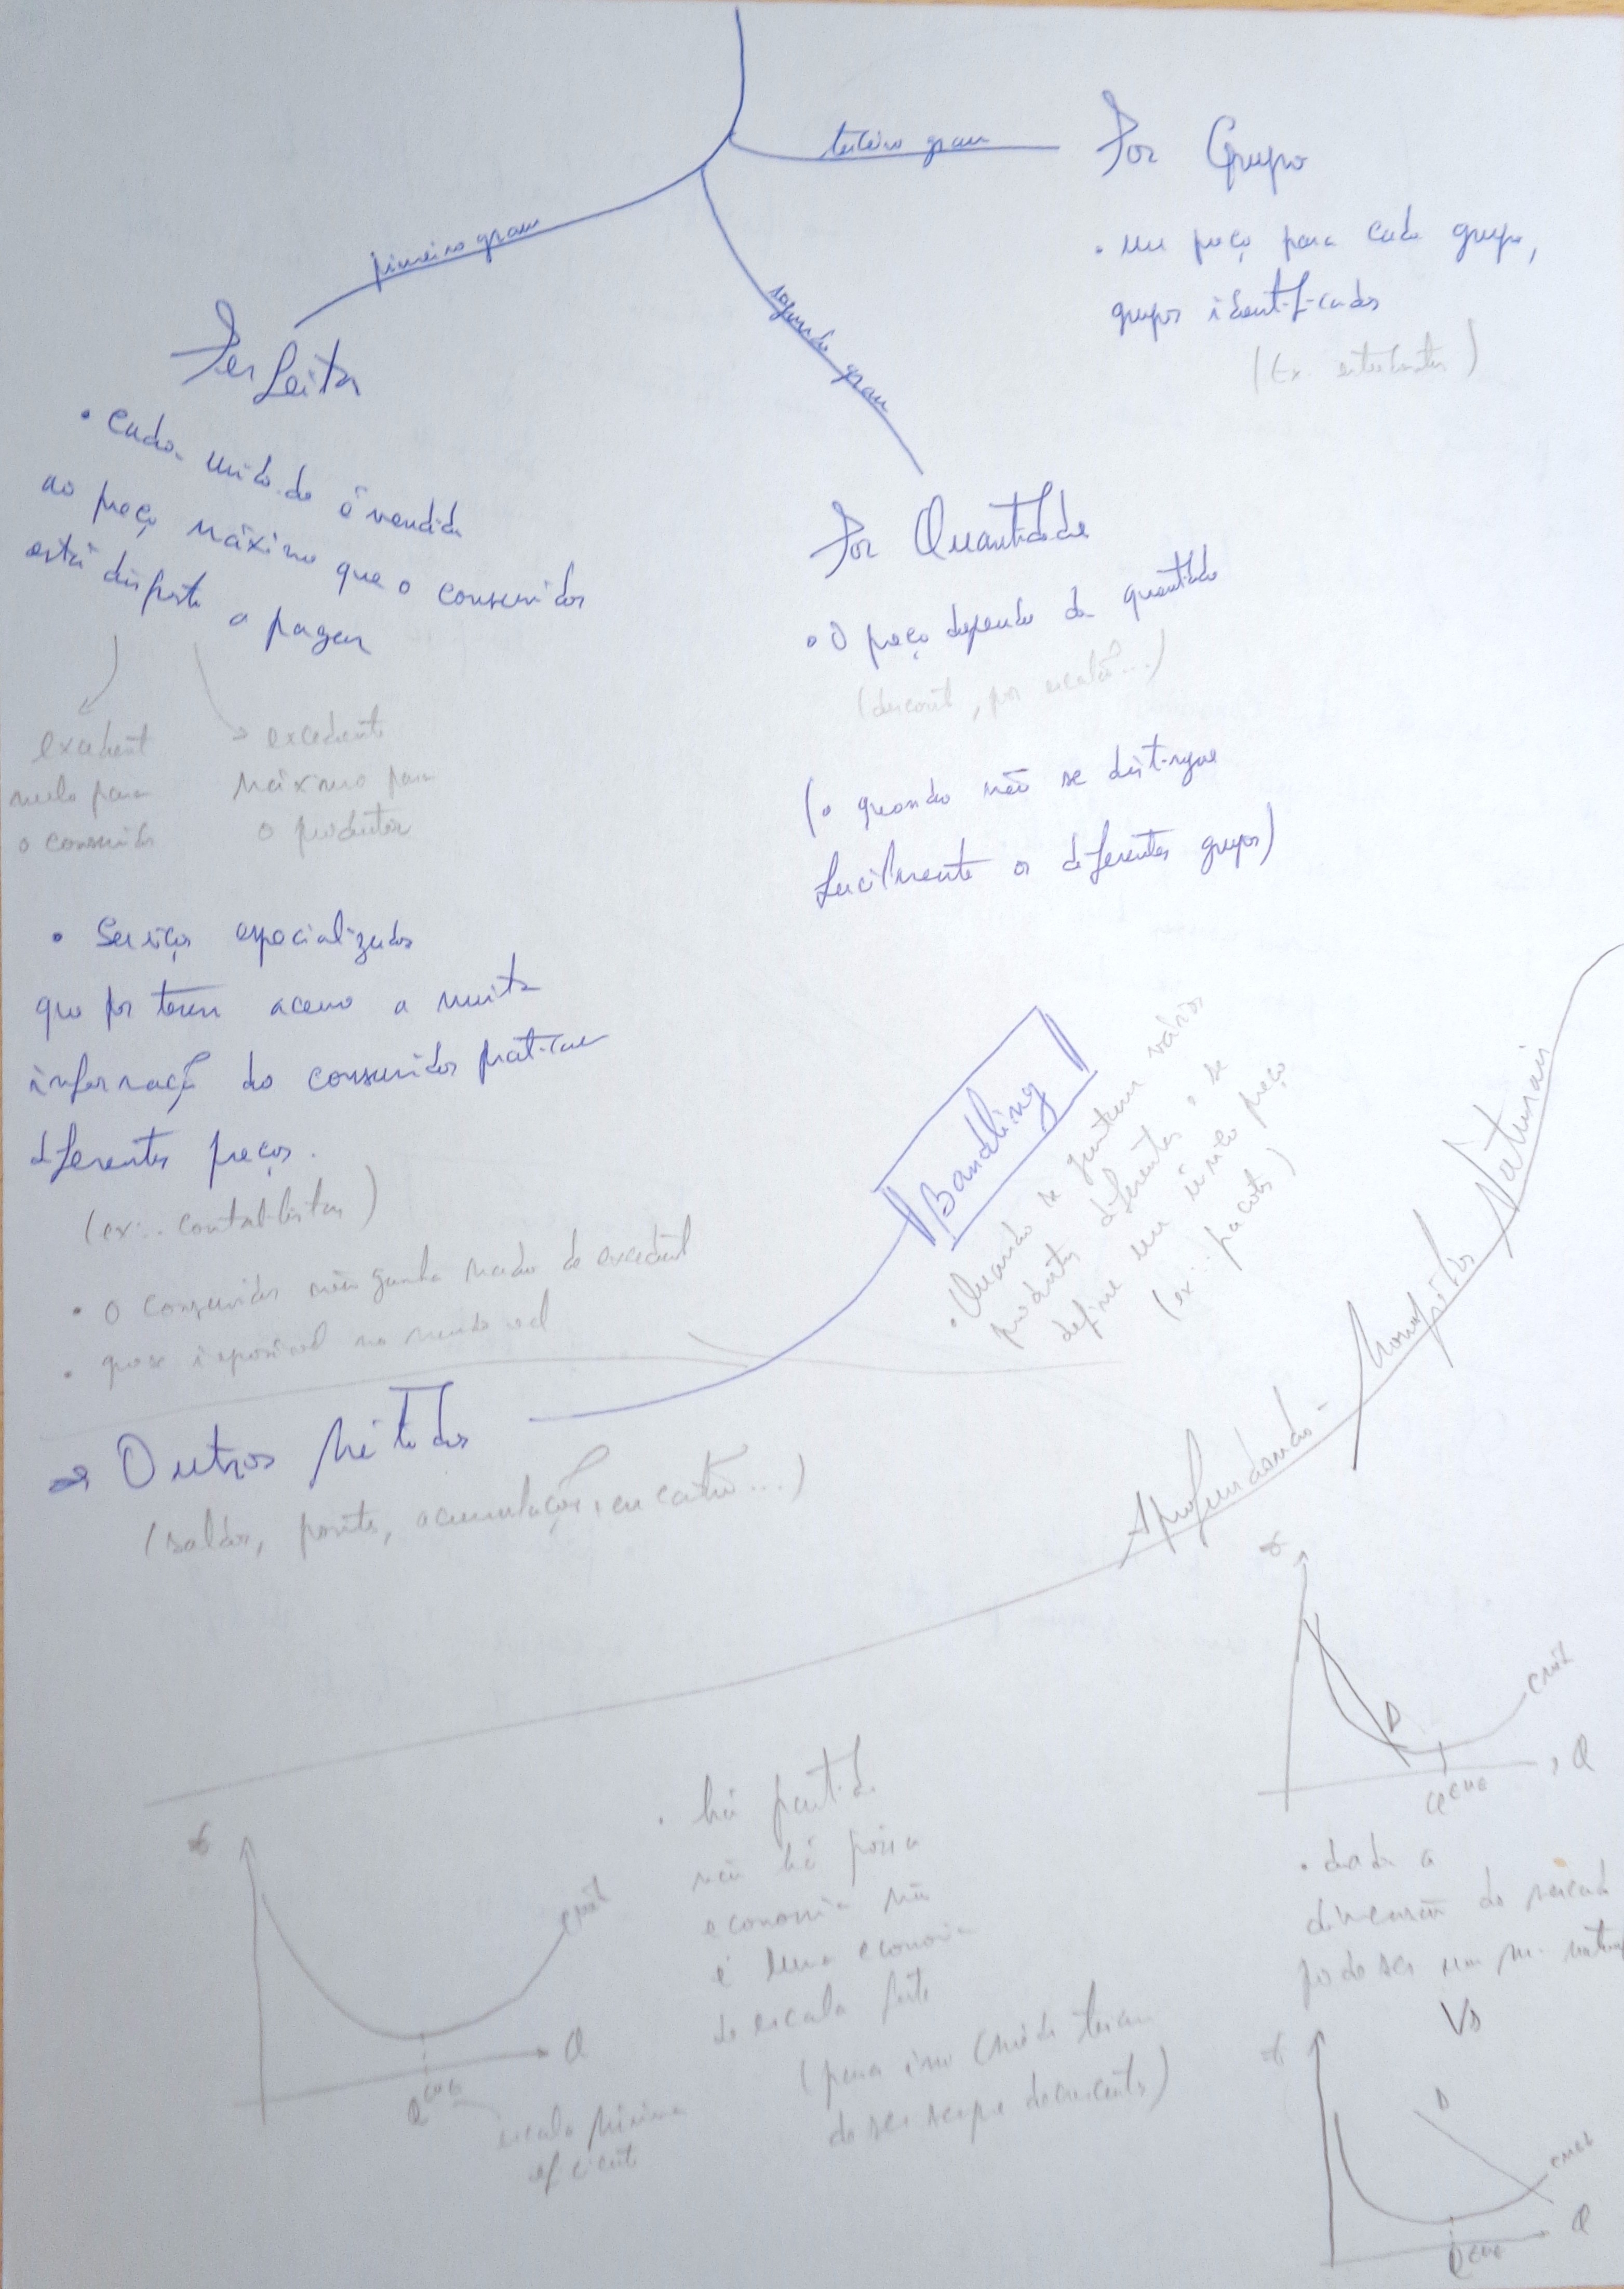 terceiro grau
Por Grupo
• um preço para cada grupo,
grupos identificados
(Ex. estudantes)
primeiro grau
Perfeita
• Cada unidade é vendida
ao preço máximo que o consumidor
está disposto a pagar
excedente
nulo para
o consumidor
excedente
máximo para
o produtor
• Serviços especializados
que por terem acesso a muita
informação do consumidor praticam
diferentes preços.
(ex: contabilistas)
• O consumidor não ganha nada de excedente
• quase impossível no mundo real
segundo grau
Por Quantidade
• O preço depende da quantidade
(desconto, por escalão...)
(• quando não se distingue
facilmente os diferentes grupos)
Outros Métodos
(saldos, pontos, acumulação, em cartão...)
Bundling
• Quando se juntam vários
produtos diferentes e se
define um único preço
(ex: pacotes)
Aprofundando - Monopólios Naturais
€
Q
escala mínima
eficiente
• há partida
não há pois a
economia não
é uma economia
de escala forte
(para isso Cméd teriam
de ser sempre decrescente)
€
D
Q
• dada a
dimensão do mercado
pode ser um m. natural
VS
€
D
Q